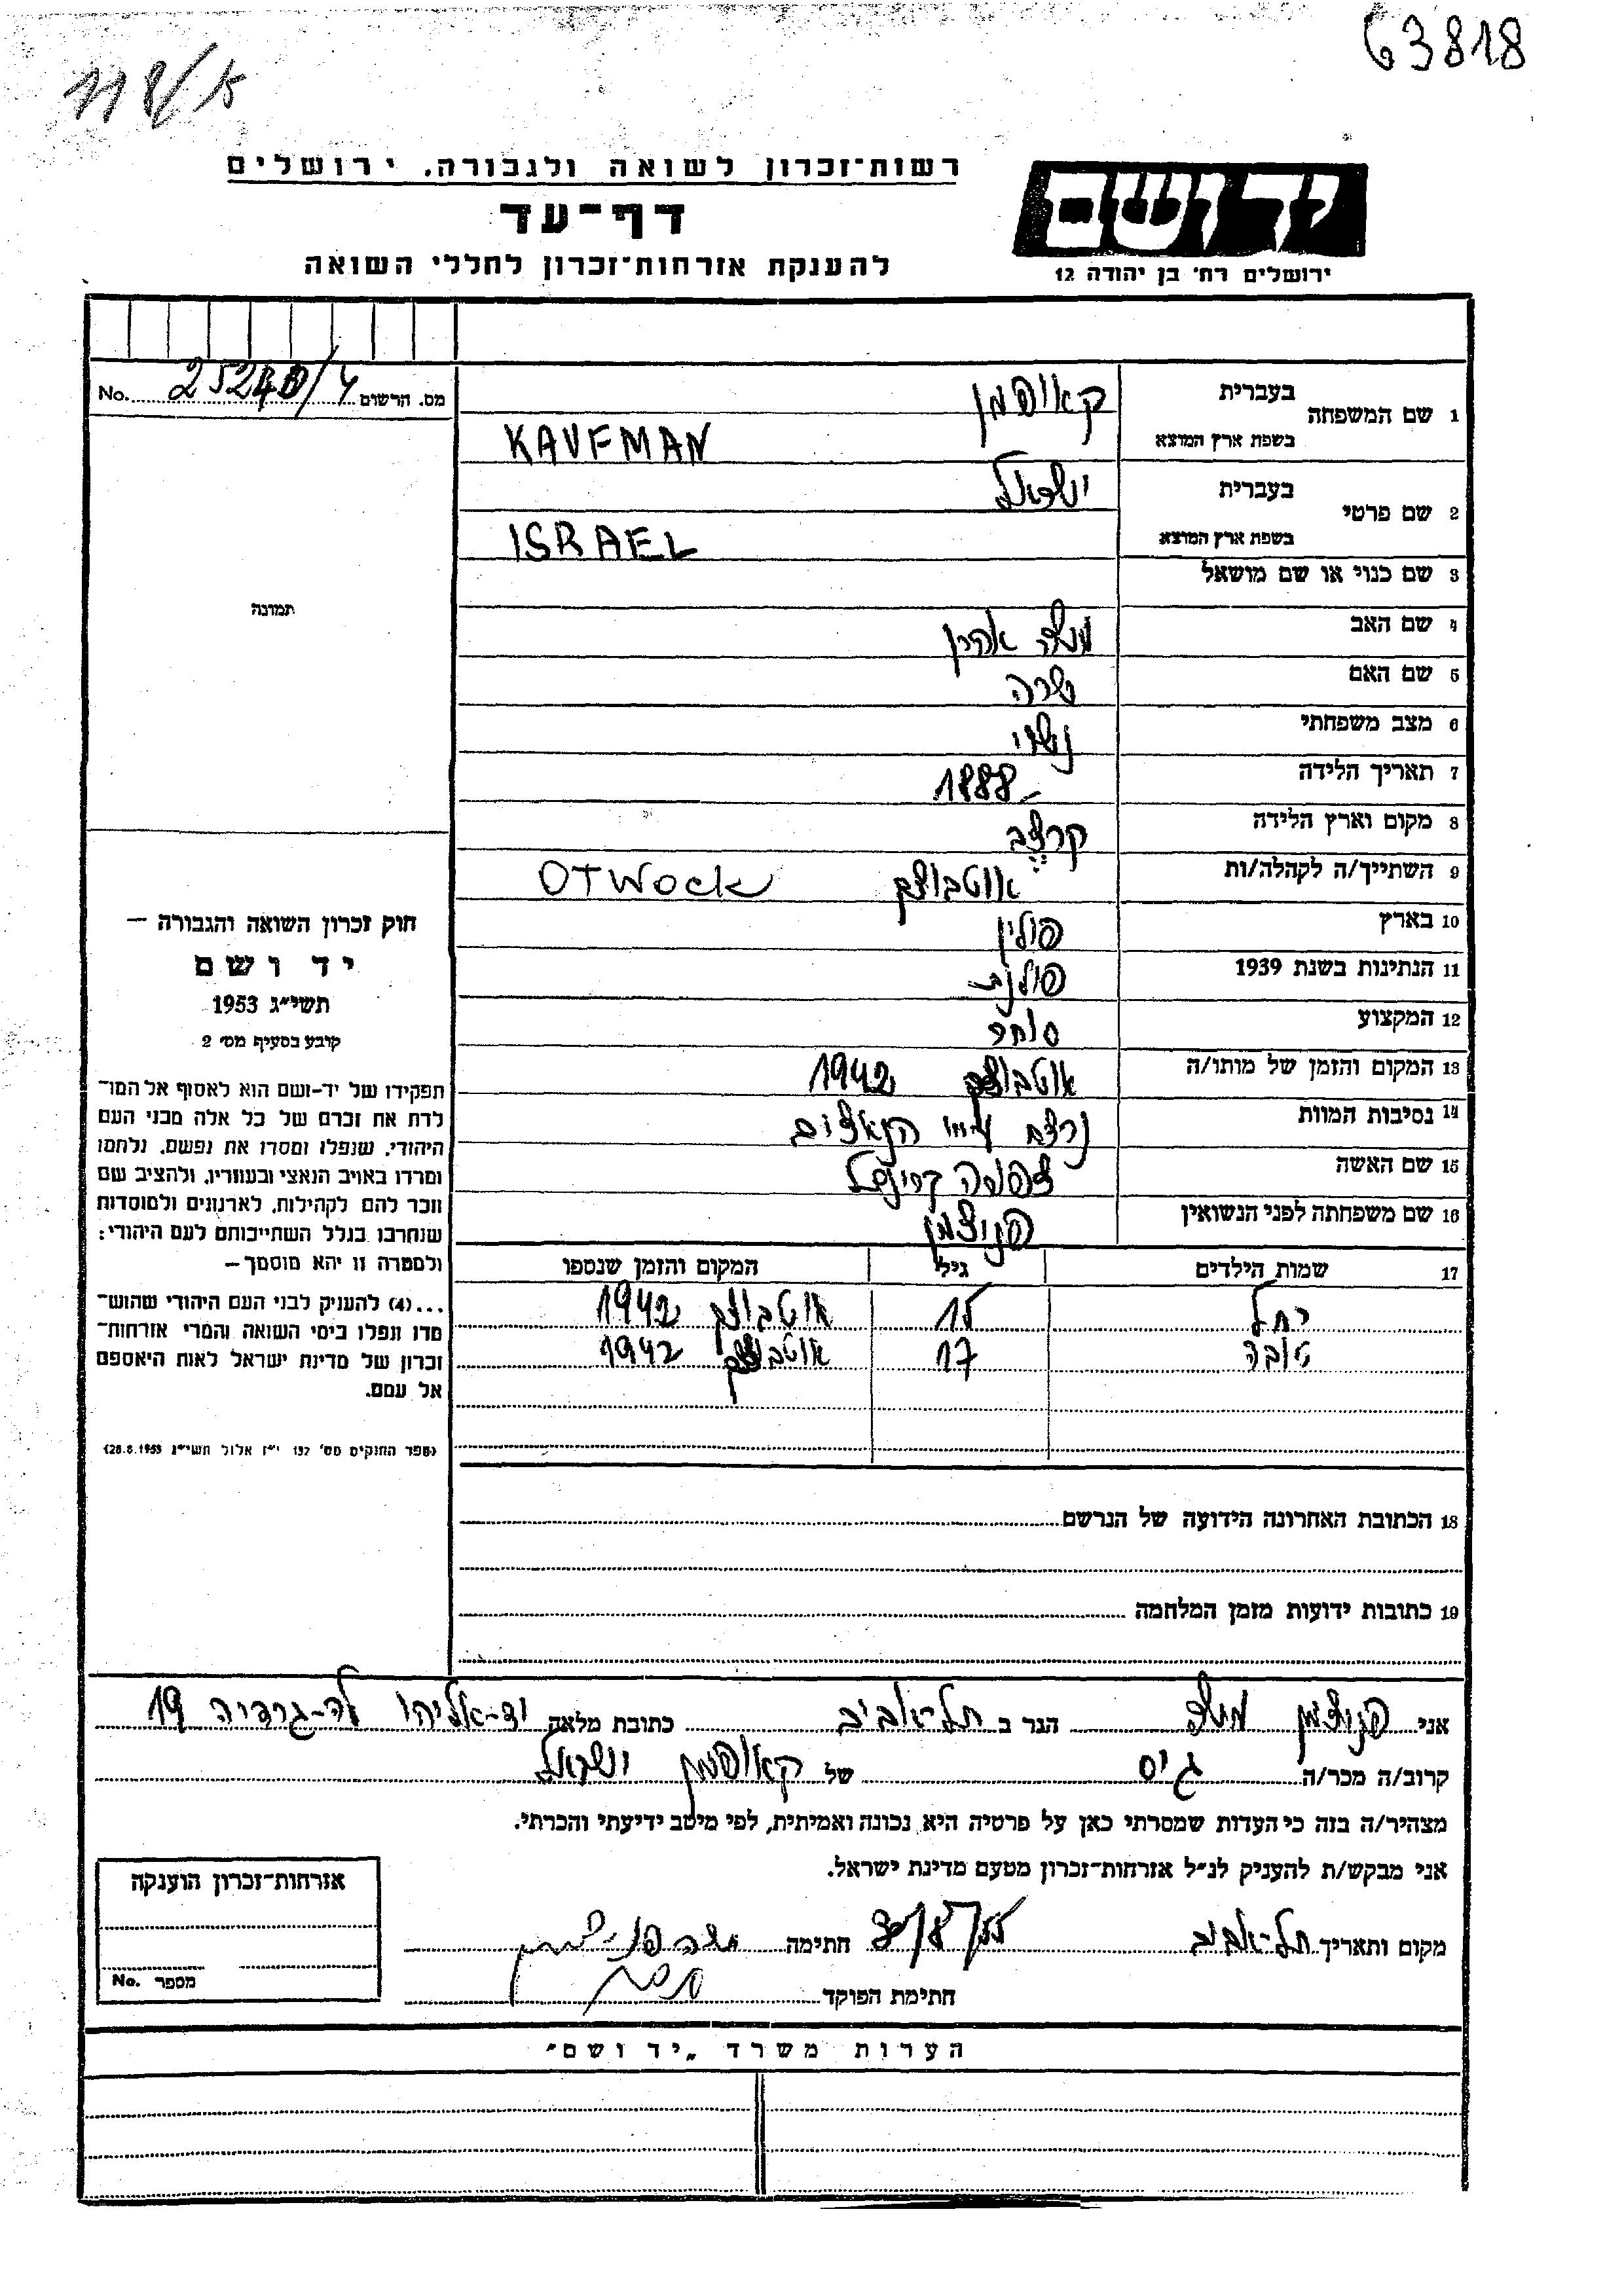 63818
118/א
רשות־זכרון לשואה ולגבורה, ירושלים
דף־עד
להענקת אזרחות־זכרון לחללי השואה
יד ושם
ירושלים רח׳ בן יהודה 12
מס. הרשום 25240/4 No.
1 שם המשפחה בעברית קאופמן
בשפת ארץ המוצא KAUFMAN
2 שם פרטי בעברית ישראל
בשפת ארץ המוצא ISRAEL
3 שם כנוי או שם מושאל
4 שם האב משה אהרן
5 שם האם שרה
6 מצב משפחתי נשוי
7 תאריך הלידה 1888
8 מקום וארץ הלידה
9 השתייך/ה לקהלה/ות אוטבוצק OTWOCK
10 בארץ פולין
11 הנתינות בשנת 1939 פולנית
12 המקצוע סוחר
13 המקום והזמן של מותו/ה אוטבוצק 1942
14 נסיבות המוות נרצח ע״י הנאצים
15 שם האשה צפורה
16 שם משפחתה לפני הנשואין
17 שמות הילדים גיל המקום והזמן שנספו
רחל 15 אוטבוצק 1942
טובה 17 אוטבוצק 1942
18 הכתובת האחרונה הידועה של הנרשם
19 כתובות ידועות מזמן המלחמה
תמונה
חוק זכרון השואה והגבורה —
יד ושם
תשי״ג 1953
קובע בסעיף מס׳ 2
תפקידו של יד־ושם הוא לאסוף אל המו־
לדת את זכרם של כל אלה מבני העם
היהודי, שנפלו ומסרו את נפשם, נלחמו
ומרדו באויב הנאצי ובעוזריו, ולהציב שם
וזכר להם לקהילות, לארגונים ולמוסדות
שנחרבו בגלל השתייכותם לעם היהודי;
ולמטרה זו יהא מוסמך —
...(4) להעניק לבני העם היהודי שהוש־
מדו ונפלו בימי השואה והמרי אזרחות־
זכרון של מדינת ישראל לאות היאספם
אל עמם.
(ספר החוקים מס׳ 132 י״ז אלול תשי״ג 28.8.1953)
אני משה הגר ב תל־אביב כתובת מלאה יד־אליהו לה־גרדיה 19
קרוב/ה מכר/ה גיס של קאופמן ישראל
מצהיר/ה בזה כי העדות שמסרתי כאן על פרטיה היא נכונה ואמיתית, לפי מיטב ידיעתי והכרתי.
אני מבקש/ת להעניק לנ״ל אזרחות־זכרון מטעם מדינת ישראל.
מקום ותאריך תל־אביב חתימה
חתימת הפוקד
אזרחות־זכרון הוענקה
מספר No.
הערות משרד „יד ושם״